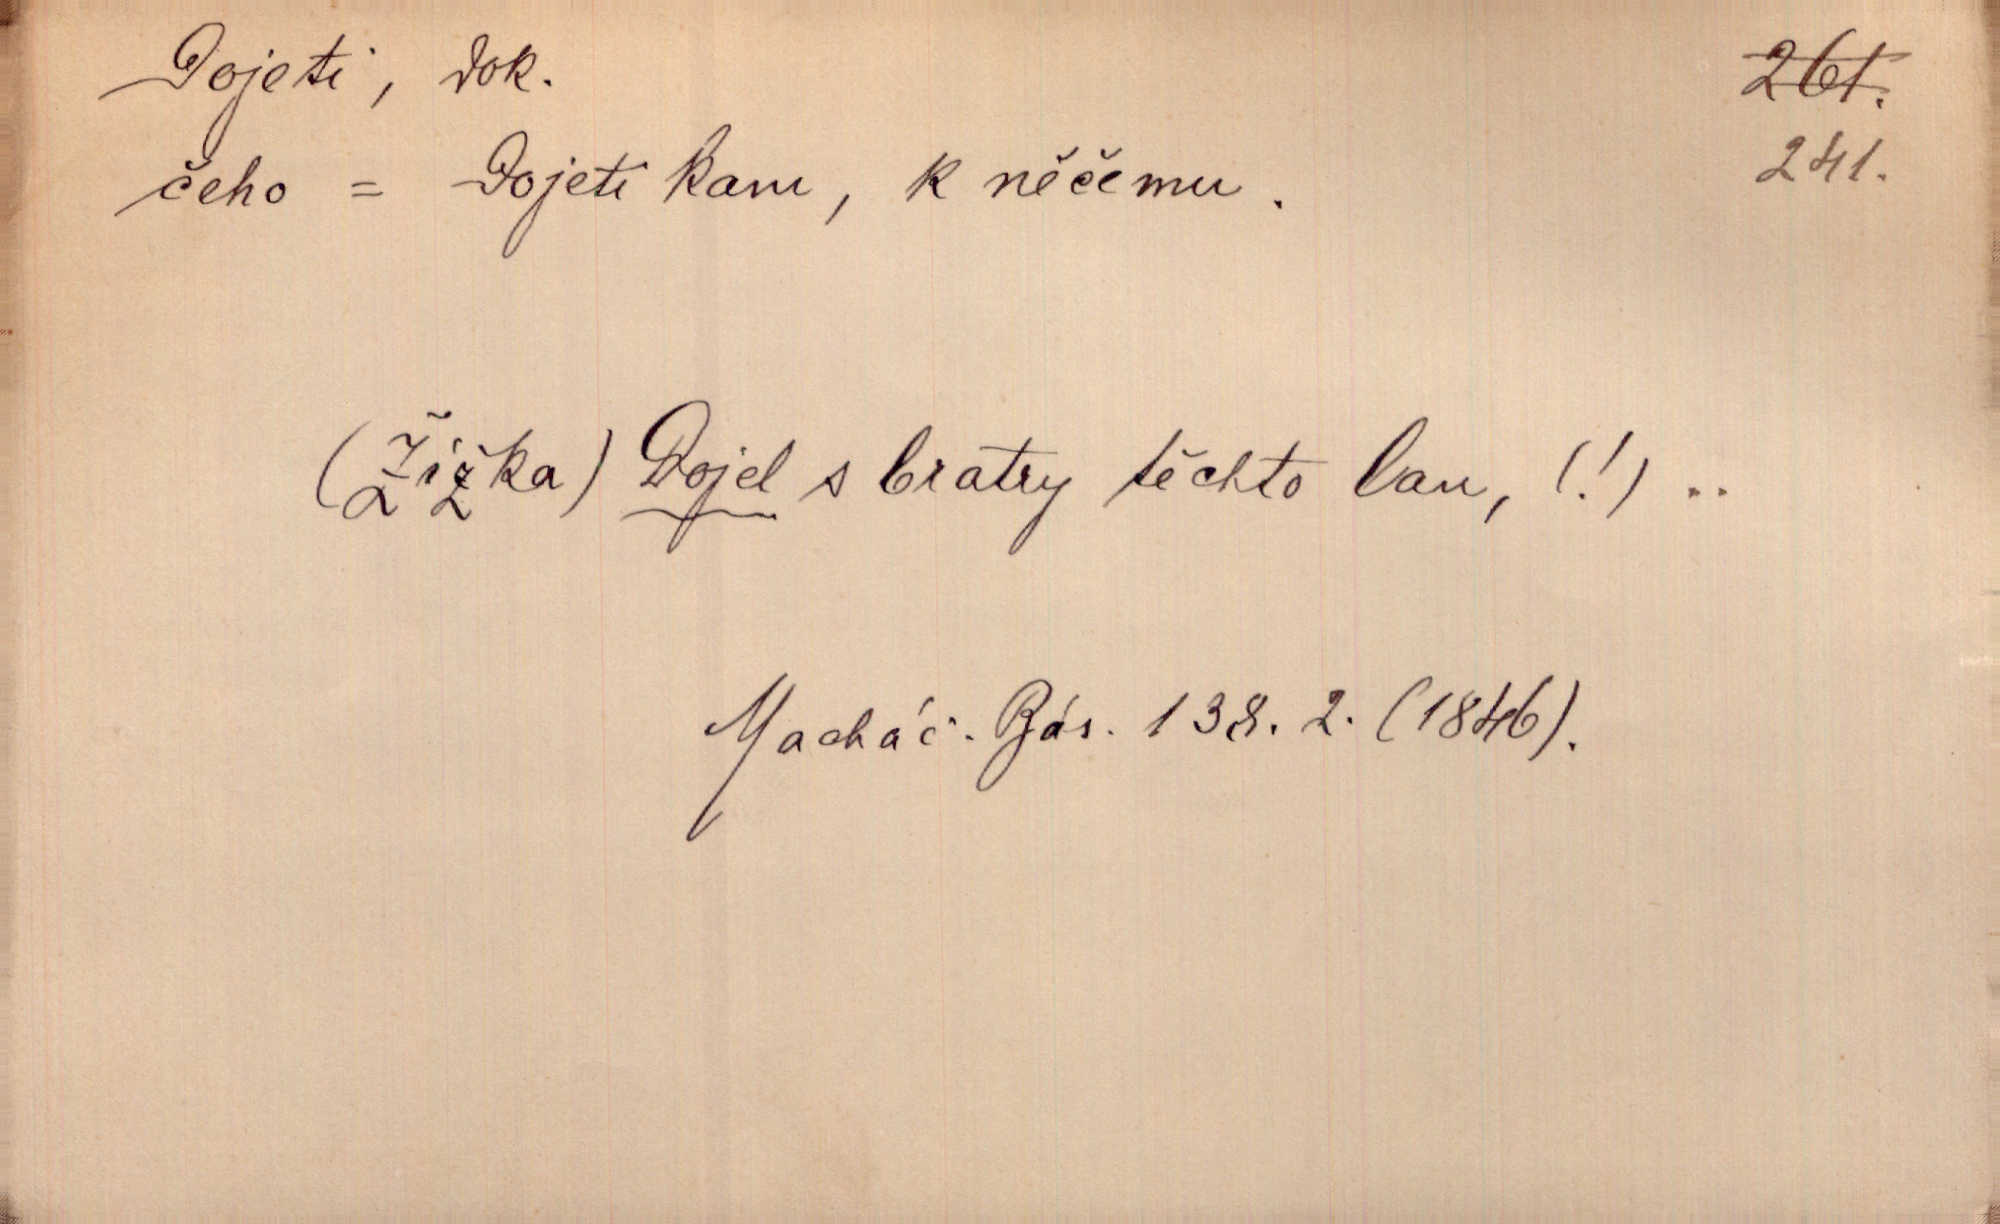 Dojeti, dok.
261.
čeho = Dojeti kam, k něčemu.
241.
(Žižka) Dojel s bratry těchto lan, (!) ..
Macháč. Bás. 138. 2. (1846).